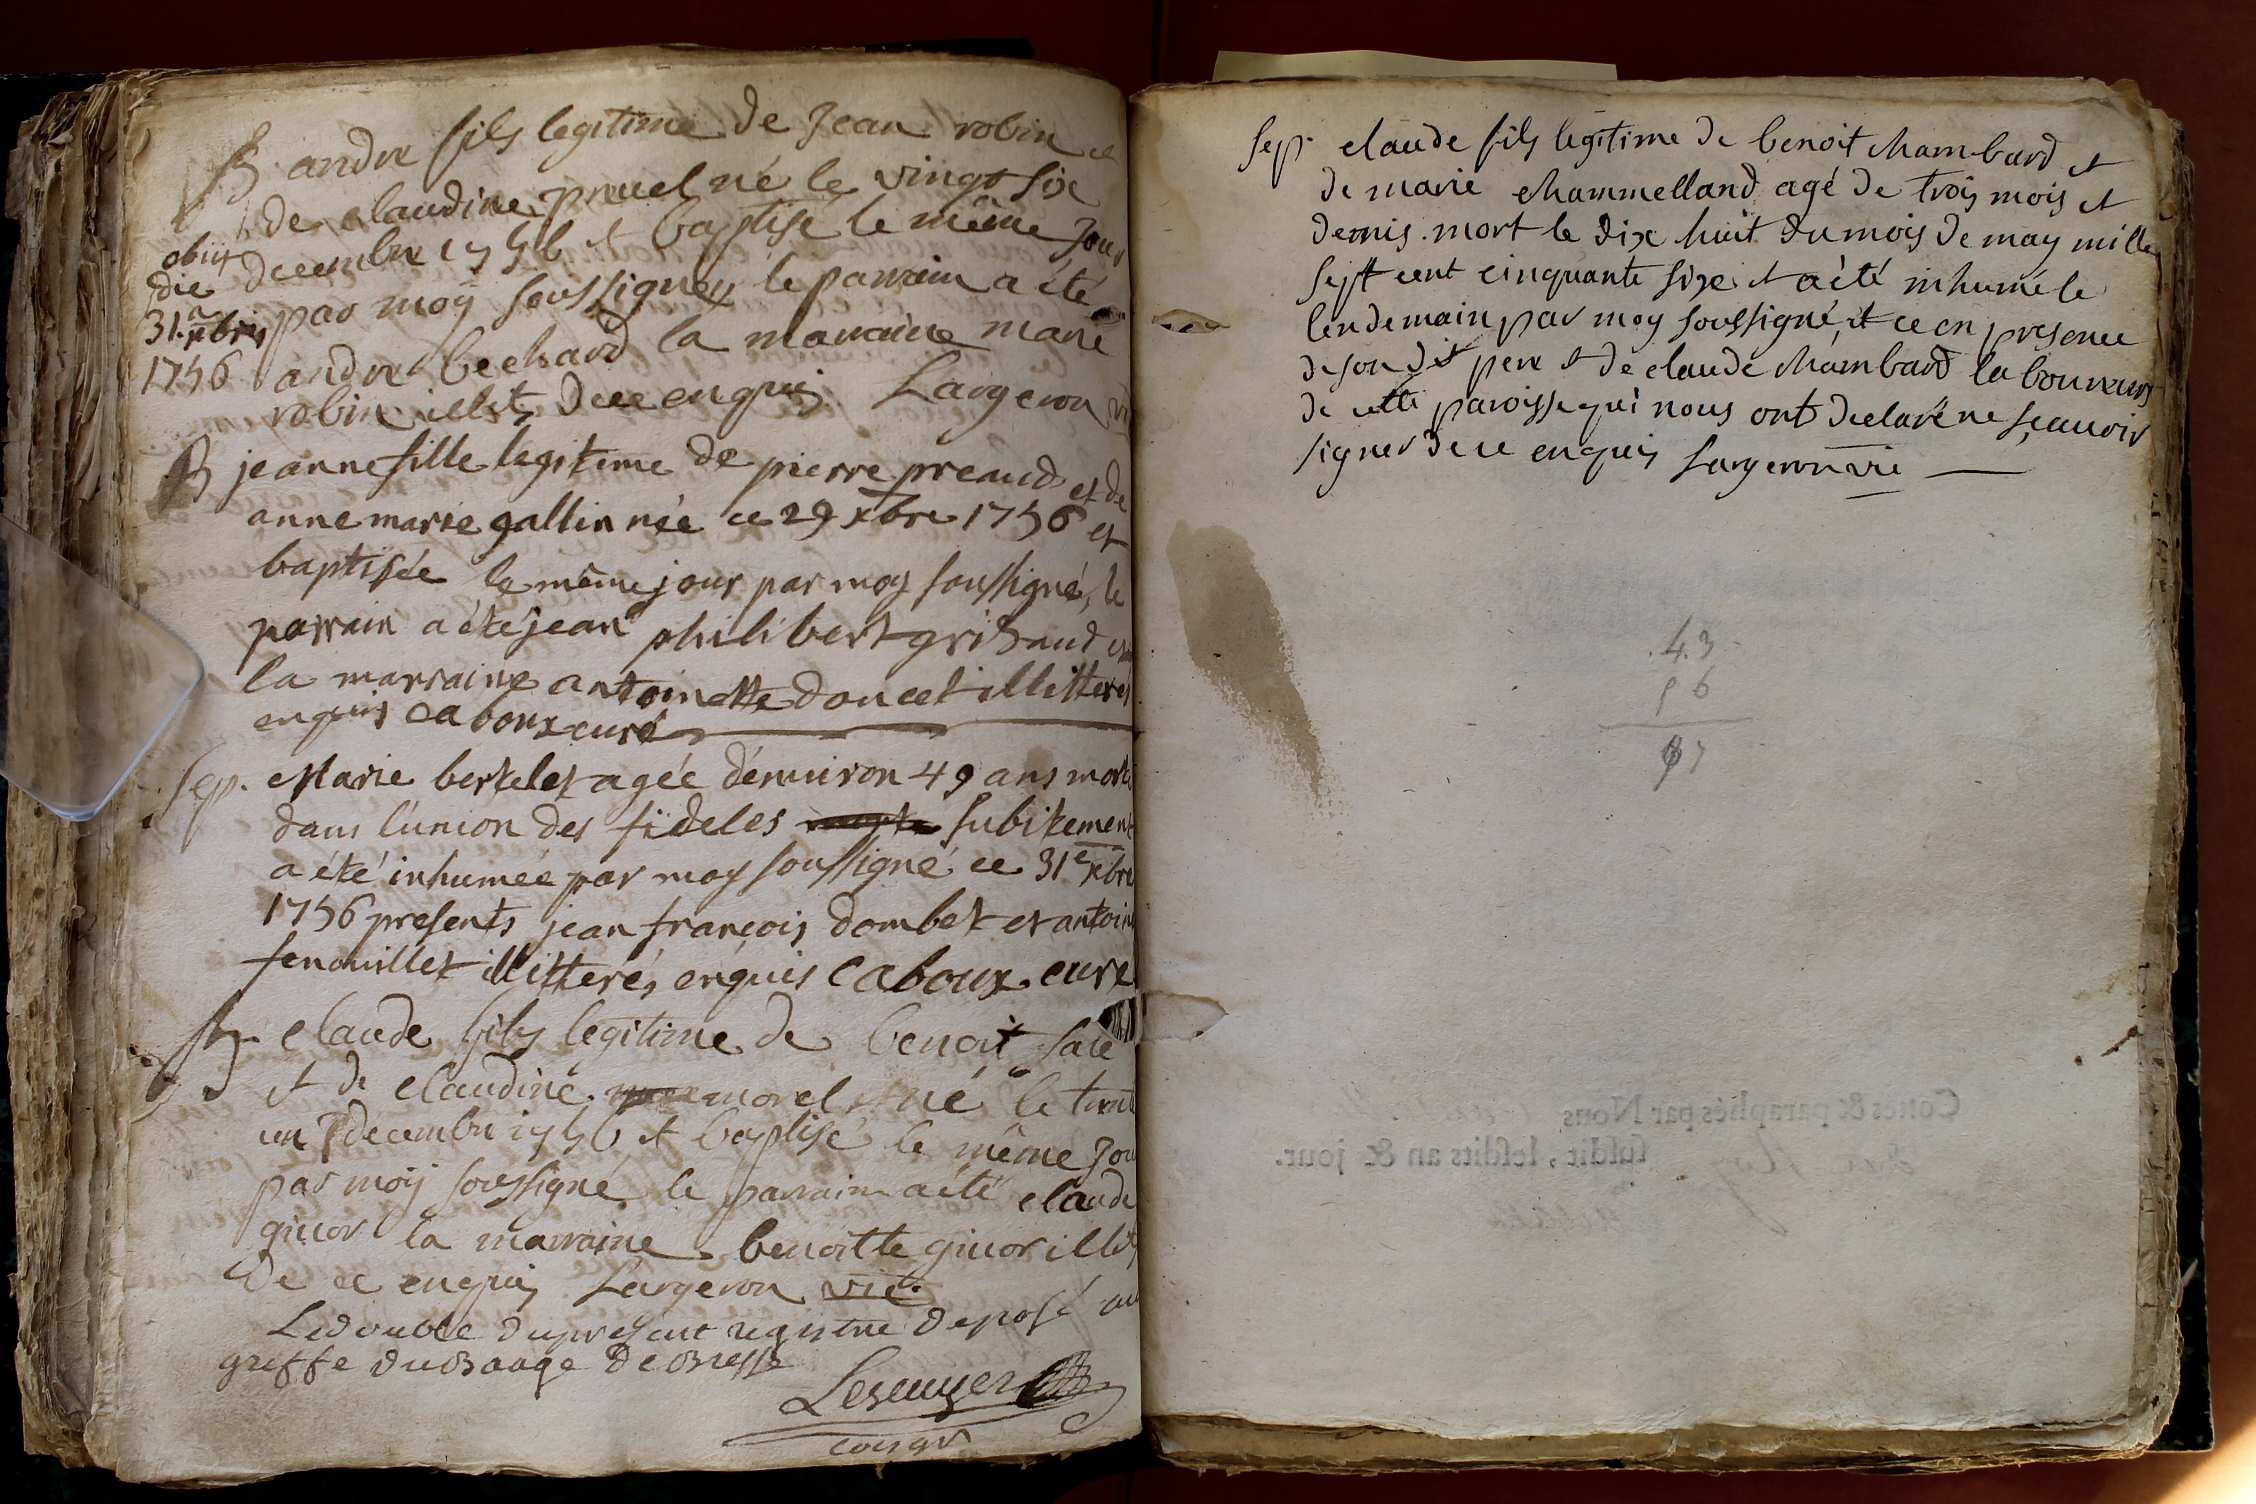 B andre fils legitime de Jean robin et
de claudine pruel né le vingt six
decembre 1756 et baptise le même jour
par moy soussigney le parrain a été
andre bechard la maraine marie
robin illets de ce enquis Largeron vic
obiit
die
31 a xbris
1756
B jeanne fille legitime de pierre preaud et de
anne marie gallin née ce 29 xbre 1756 et
baptisée le même jour par moy soussigné, le
parrain a été jean philibert grisaud et
la marraine antoinette doucet illitteres
enquis Caboux curé
Sep. Marie bertelet agée d'environ 49 ans morte
dans l'union des fideles subitement
a été inhumée par moy soussigné ce 31e xbre
1756 presents jean françois dombet et antoine
fenouillet illitterés enquis Caboux curé
B claude fils legitime de benoit
et de claudine morel né le trente
un decembre 1756 et baptisé le même jour
par moy soussigné le parrain a été claude
givor la marraine benoitte givor illets
de ce enquis Largeron vic.
Le double du present registre deposé au
greffe du Baage de Bresse
Sep. claude fils legitime de benoit chambard et
de marie chammelland agé de trois mois et
demis mort le dix huit du mois de may mille
sept cent cinquante size et a été inhumé le
lendemain par moy soussigné, et ce en presence
de son dit pere et de claude chambard laboureurs
de cette paroisse qui nous ont declaré ne sçauoir
signer de ce enquis Largeron vic
43
56
Cottés & paraphés par Nous
susdit, lesdits an & jour.